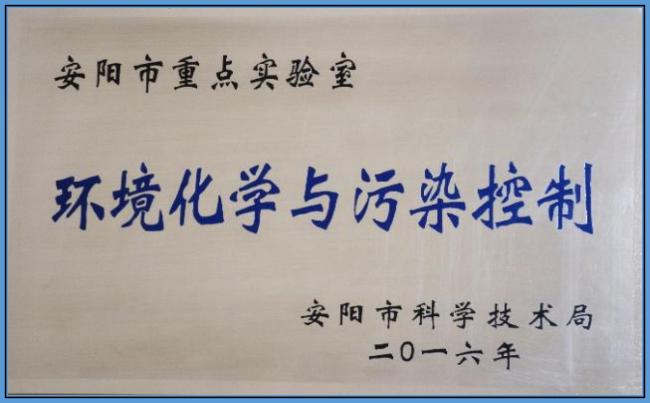 安阳市重点实验室
环境化学与污染控制
安阳市科学技术局
二〇一六年